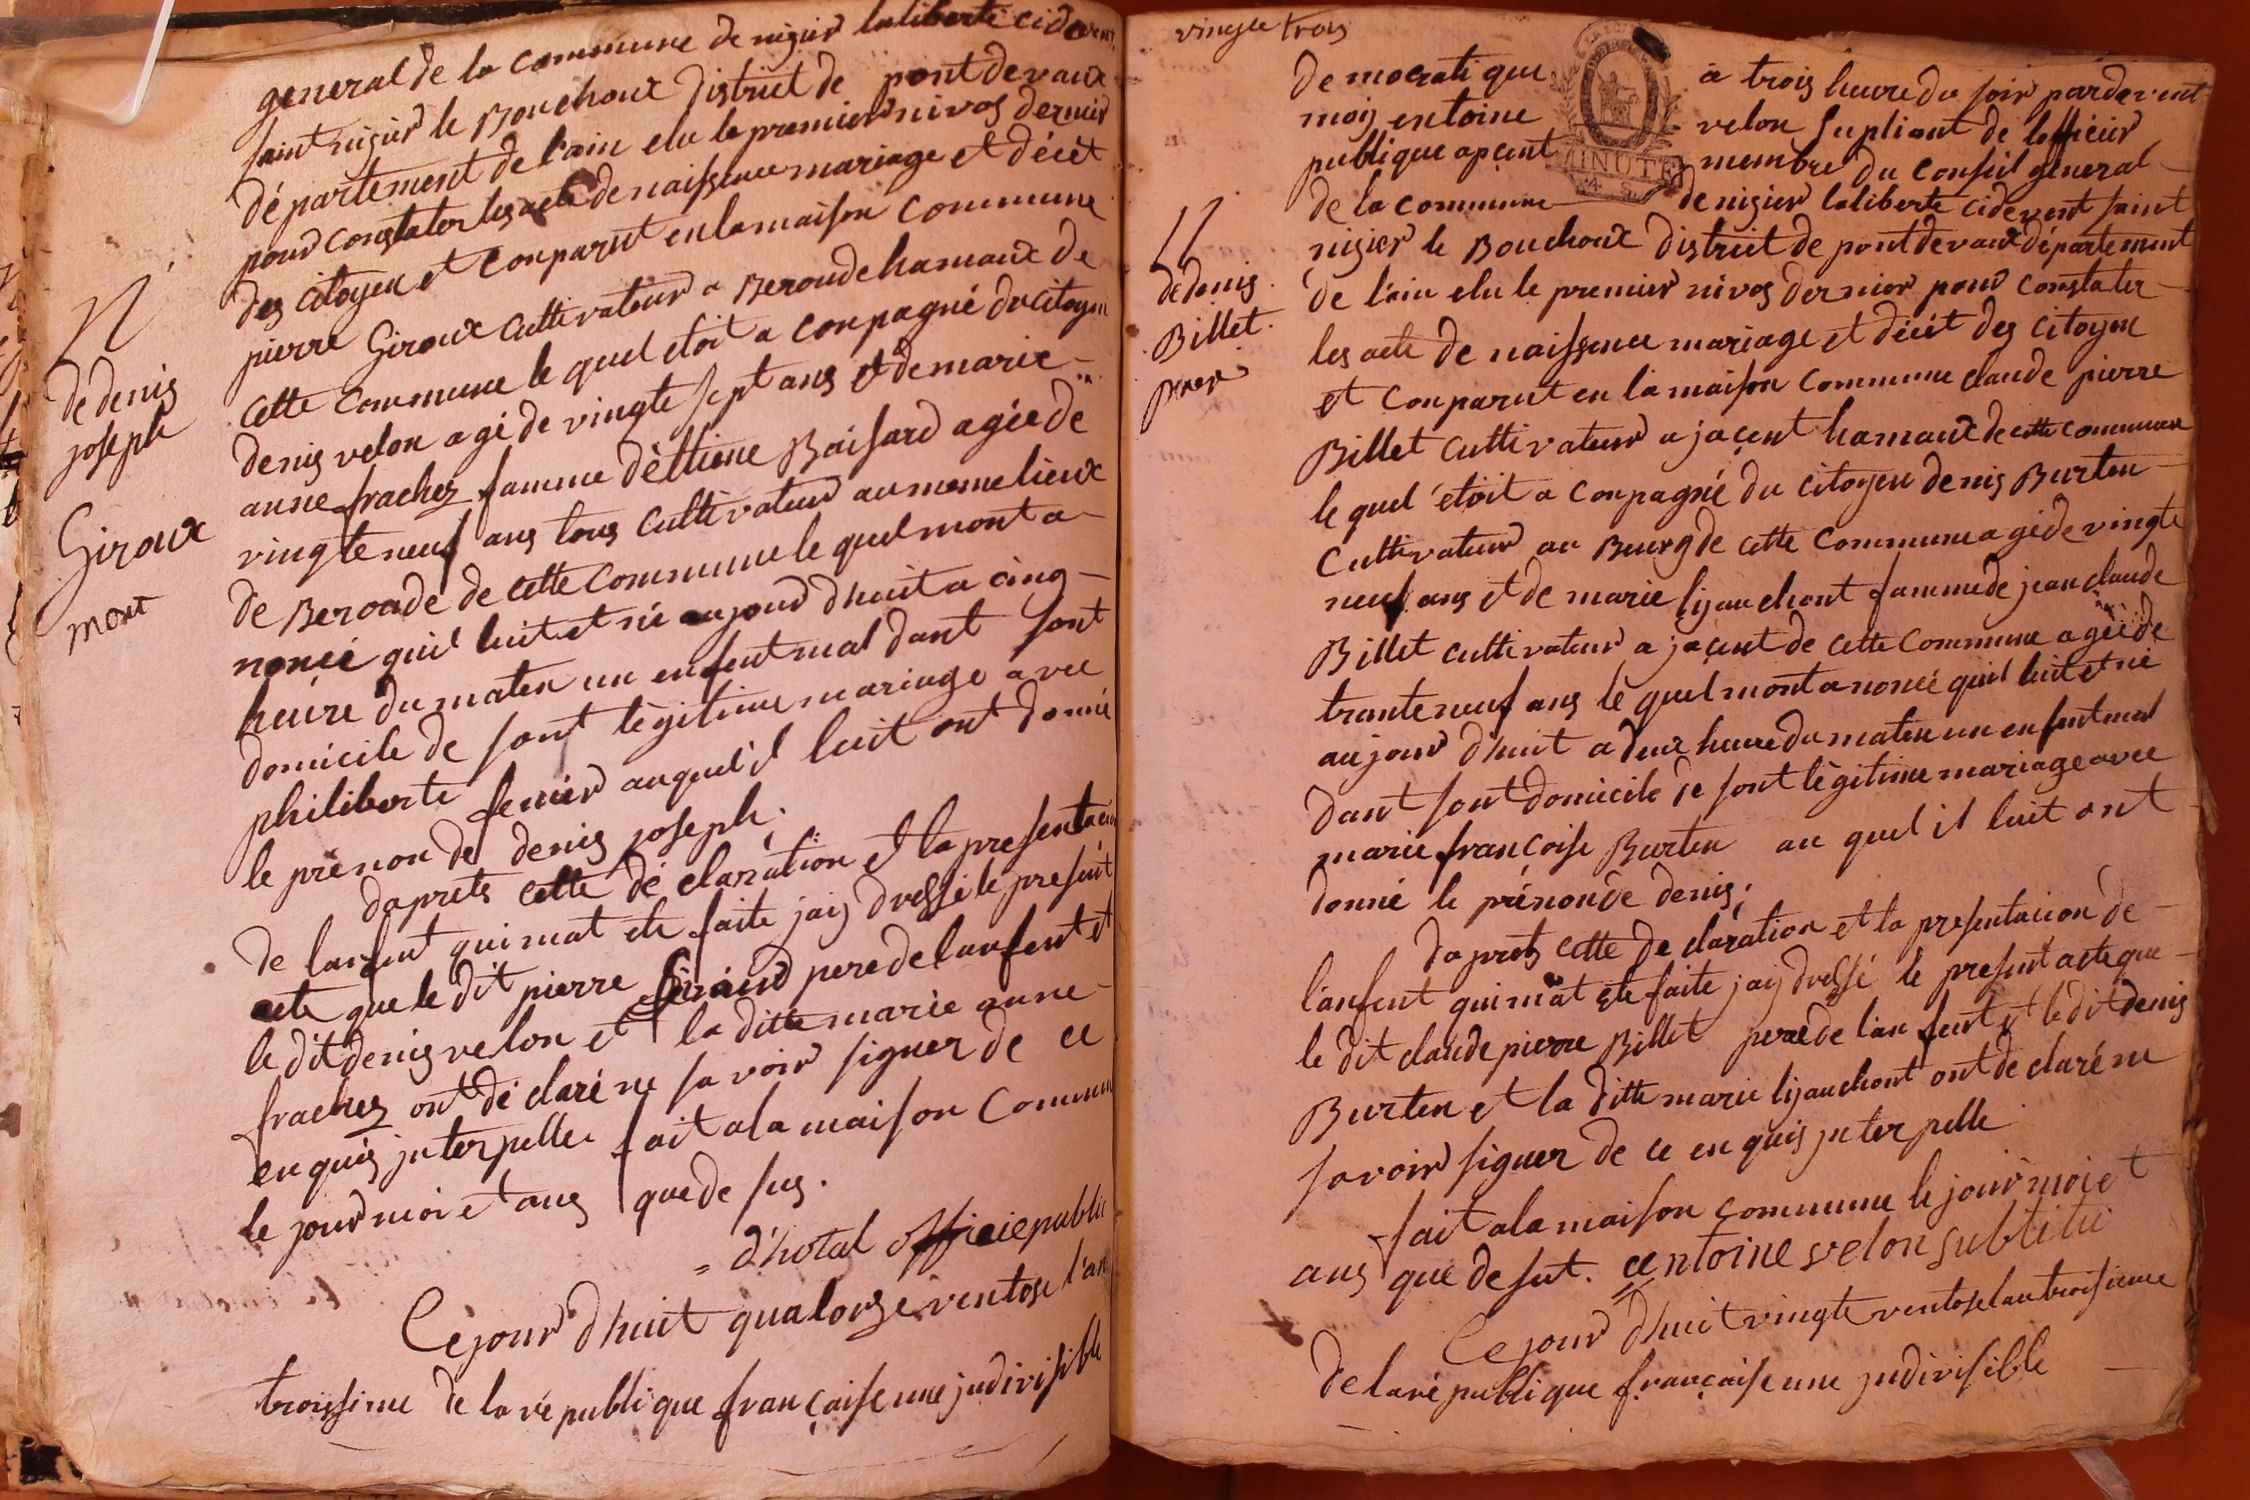 general de la commune de nizier laliberté cidevent
saint nizier le Bouchoux district de pontdevaux
département de l'ain elu le premier nivos dernier
pour constater les acte de naissence mariage et décét
des citoyen et conparut en la maison commune
pierre Giroux cultivateur a Beroude hamaux de
cette commune le quel etoit a conpagné du citoyen
denis velon agé de vingte sept ans et de marie
anne frachez famme d'ettiene Boisard agée de
vingte neuf ans tous cultivateur au meme lieux
de Beroude de cette commune le quel mont a
noncé quil luit et né aujourd huit a cinq
heure du maten un enfent mal dant sont
domicile de sont légitime mariage avec
philiberte ferier auquel il luit ont donné
le prénon de denis joseph.
N
de denis
joseph
Giroux
mort
daprets cette dé claration et la presentacion
de lanfent qui mat ete faite jaij dressé le presént
acte que le dit pierre pere de lanfent et
le dit denis velon et la ditte marie anne
frachez ont dé claré ne savoir signer de ce
enquis jnterpelle. fait a la maison commune
le jour moi et ans que de sus.
= d'hotal officie public
Ce jour d'huit quatorze ventose l'an
troissime de la république française une jndivisible
vingte trois
democratique a trois heure du soir pardevent
moij entoine velon supliant de lofficier
publique apcent membre du conseil géneral
de la commune de nizier laliberte cidevent saint
MINUTE
nizier le Bouchoux district de pontdevaux département
de l'ain elu le premier nivos dernier pour constater
les acte de naissence mariage et décét des citoyen
et conparut en la maison commune claude pierre
Billet cultivateur a jaçent hamaux de cette commune
le quel étoit a conpagné du citoyen denis Burten
cultivateur au Bourg de cette commune agé de vingte
neuf ans et de marie lijauchont famme de jean claude
Billet cultivateur a jaçent de cette commune agée de
trante neuf ans le quel mont anoncé quil luit et né
aujour d'huit a deux heure du maten un enfent mal
dant sont domicile de sont légitime mariage avec
marie françoise Burten au quel il luit ont
donné le prénon de denis.
N
de denis
Billet
daprets cette de claration et la presentacion de
l'anfent qui m'at ete faite jaij dressé le presént acte que
le dit claude pierre Billet pere de l'anfent et le dit denis
Burten et la ditte marie lijauchont ont de claré ne
savoir signer de ce en quis jnterpelle
fait a la maison commune le jour moi et
ans que de sut. antoine velon subtitu
Ce jour d'huit vingte ventose lan troisieme
de la république française une jndivisible